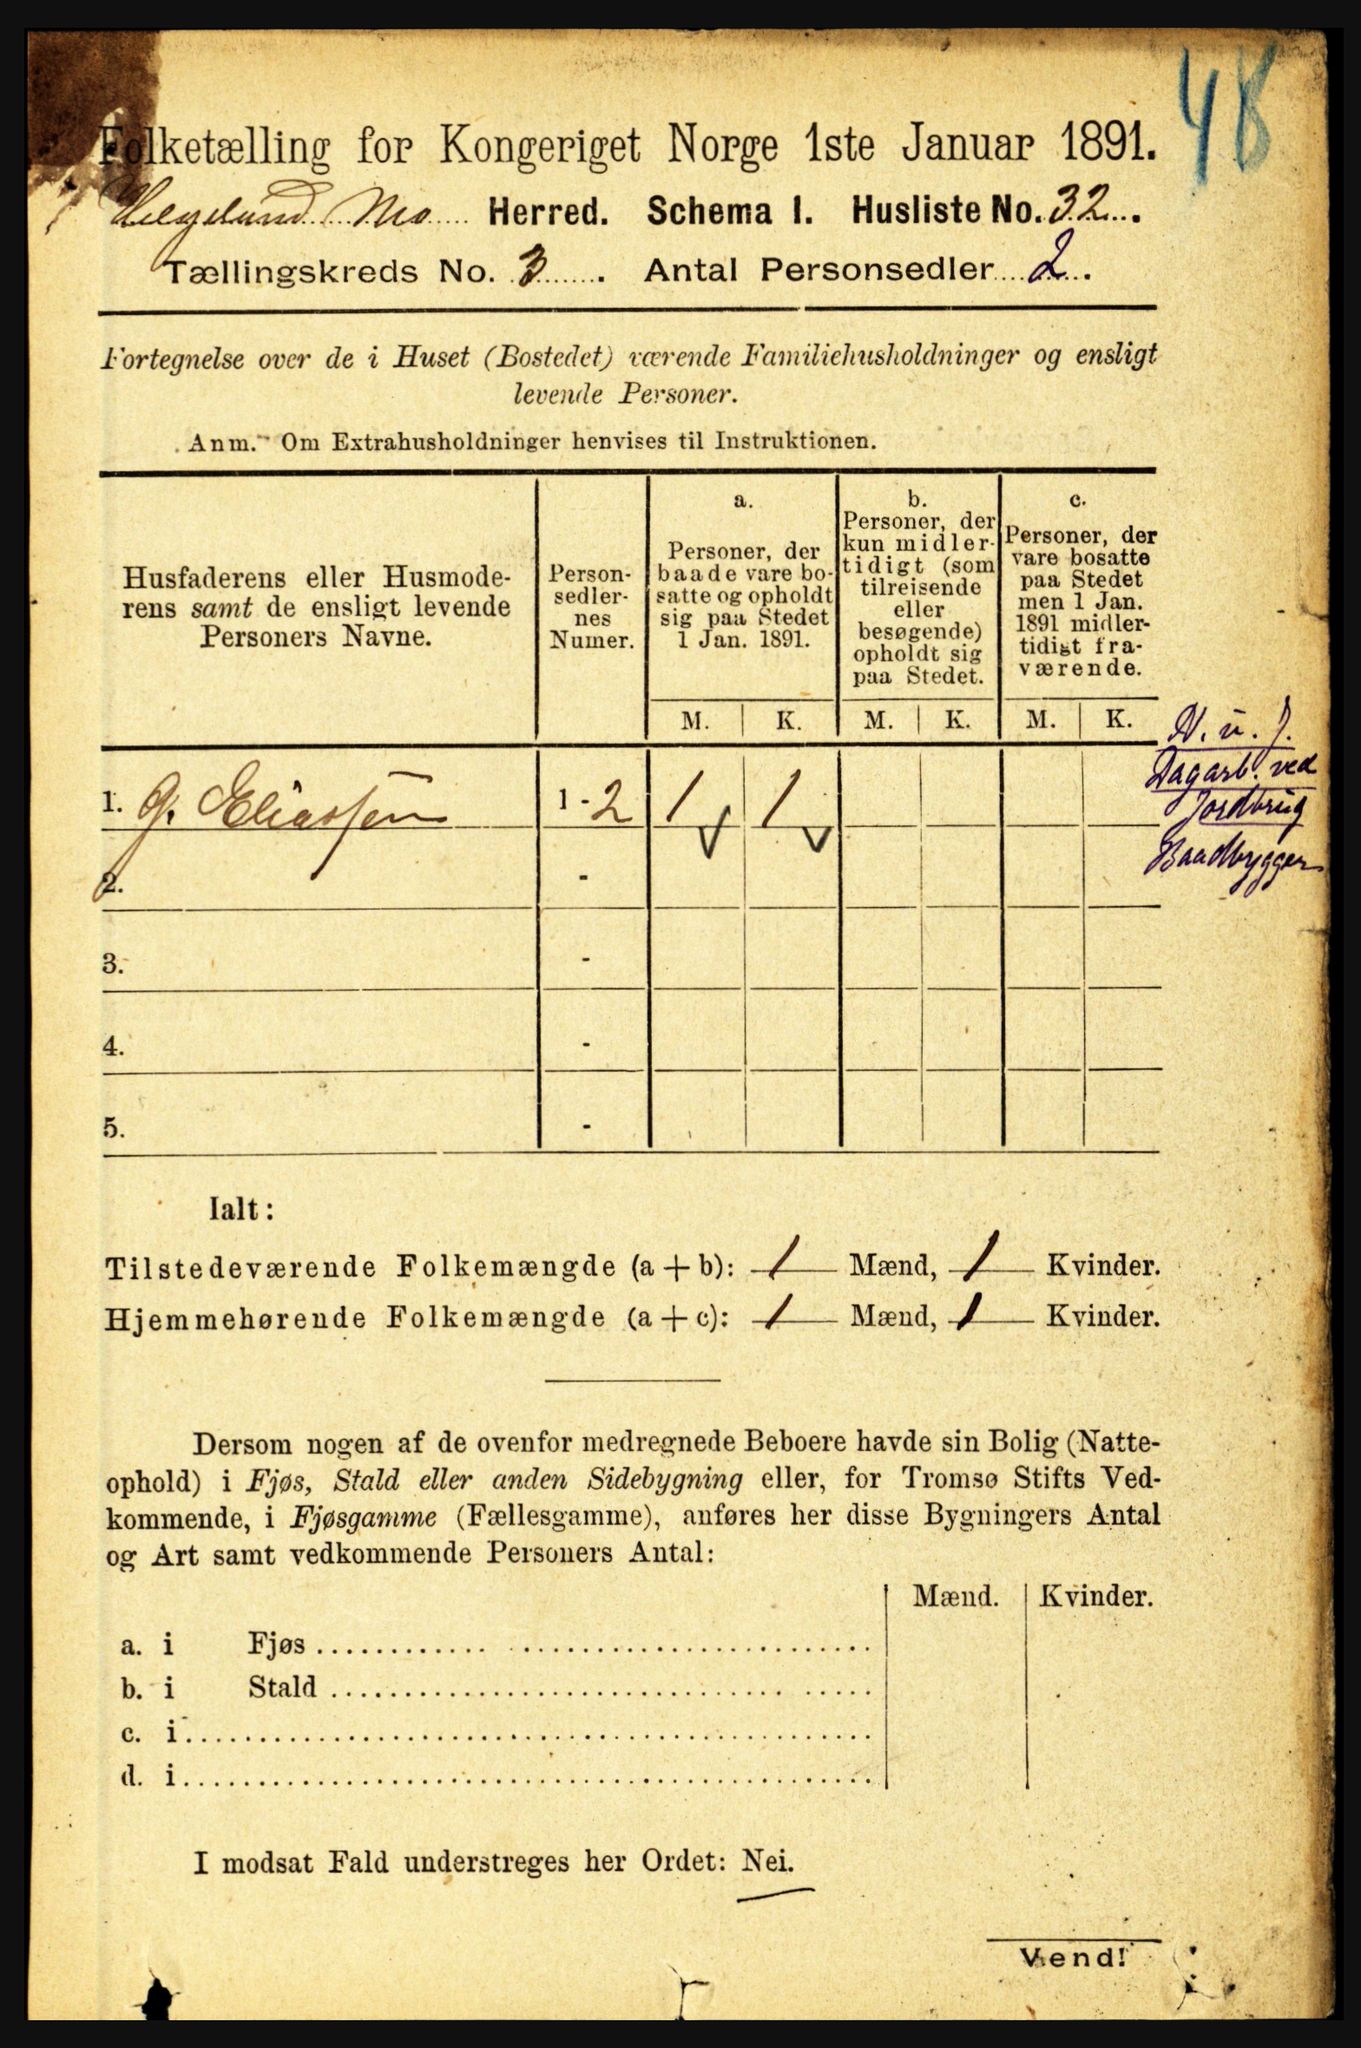 48
Folketælling for Kongeriget Norge 1ste Januar 1891.
Helgeland Mo Herred. Schema I. Husliste No. 32.
Tællingskreds No. 3. Antal Personsedler 2.
Fortegnelse over de i Huset (Bostedet) værende Familiehusholdninger og ensligt
levende Personer.
Anm. Om Extrahusholdninger henvises til Instruktionen.
Husfaderens eller Husmode-
rens samt de ensligt levende
Personers Navne.
Person-
sedler-
nes
Numer.
a.
Personer, der
baade vare bo-
satte og opholdt
sig paa Stedet
1 Jan. 1891.
b.
Personer, der
kun midler-
tidigt (som
tilreisende
eller
besøgende)
opholdt sig
paa Stedet.
c.
Personer, der
vare bosatte
paa Stedet
men 1 Jan.
1891 midler-
tidigt fra-
værende.
M. K. M. K. M. K.
N. u. J.
Dagarb. ved
Jordbrug
Baadbygger
1. G. Eliassen 1 - 2 1 1
2. -
3. -
4. -
5. -
Ialt:
Tilstedeværende Folkemængde (a + b): 1 Mænd, 1 Kvinder.
Hjemmehørende Folkemængde (a + c): 1 Mænd, 1 Kvinder.
Dersom nogen af de ovenfor medregnede Beboere havde sin Bolig (Natte-
ophold) i Fjøs, Stald eller anden Sidebygning eller, for Tromsø Stifts Ved-
kommende, i Fjøsgamme (Fællesgamme), anføres her disse Bygningers Antal
og Art samt vedkommende Personers Antal:
Mænd. Kvinder.
a. i Fjøs
b. i Stald
c. i
d. i
I modsat Fald understreges her Ordet: Nei.
Vend!